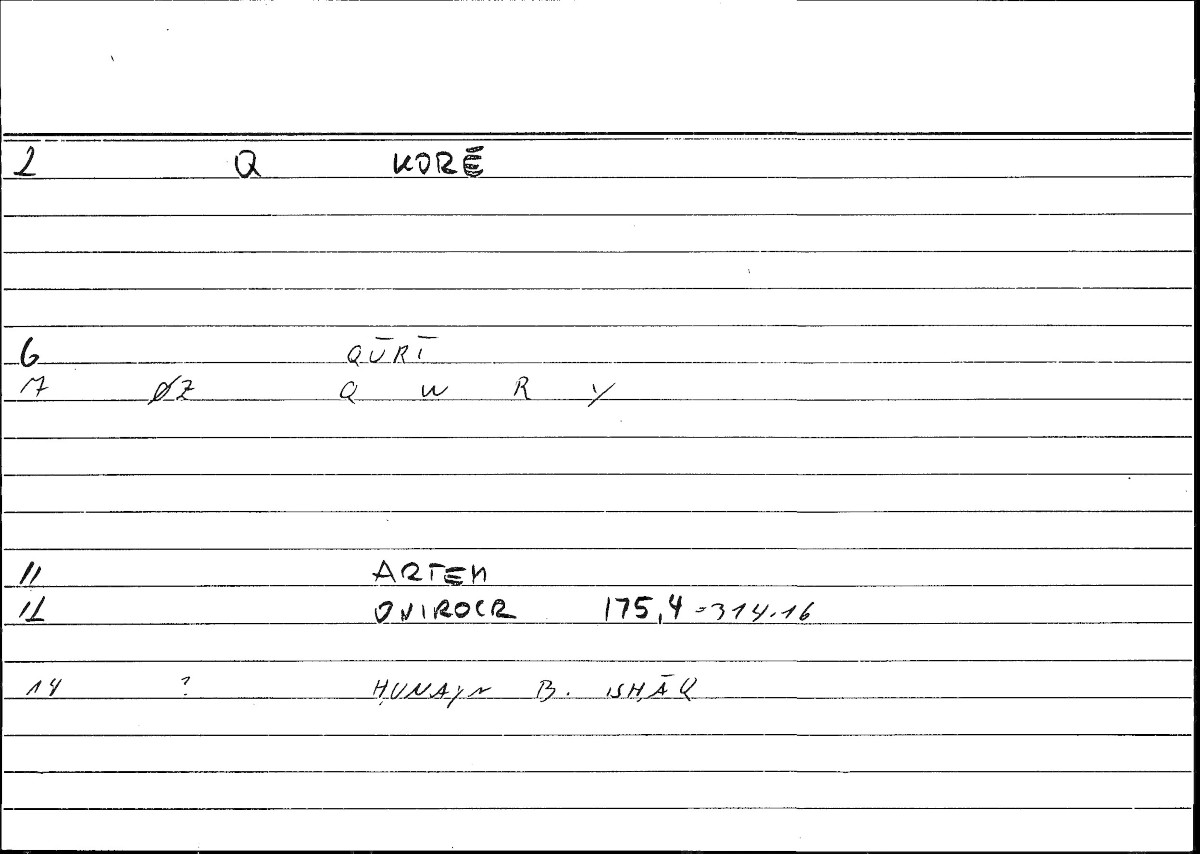 2 Q KORĒ
6 QŪRĪ
7 ØZ Q W R Y
11 ARTEM
12 ONIROCR 175,4 = 314.16
14 ? ḤUNAYN B. ISḤĀQ